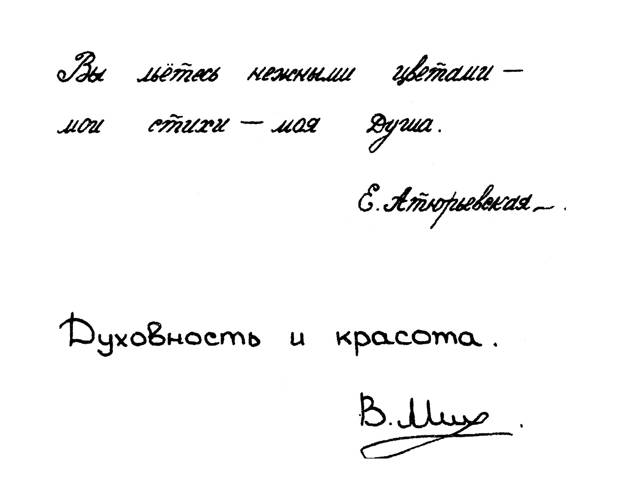 Вы льётесь нежными цветами —
мои стихи — моя Душа.
Е. Атюрьевская
Духовность и красота.
В. Мих.